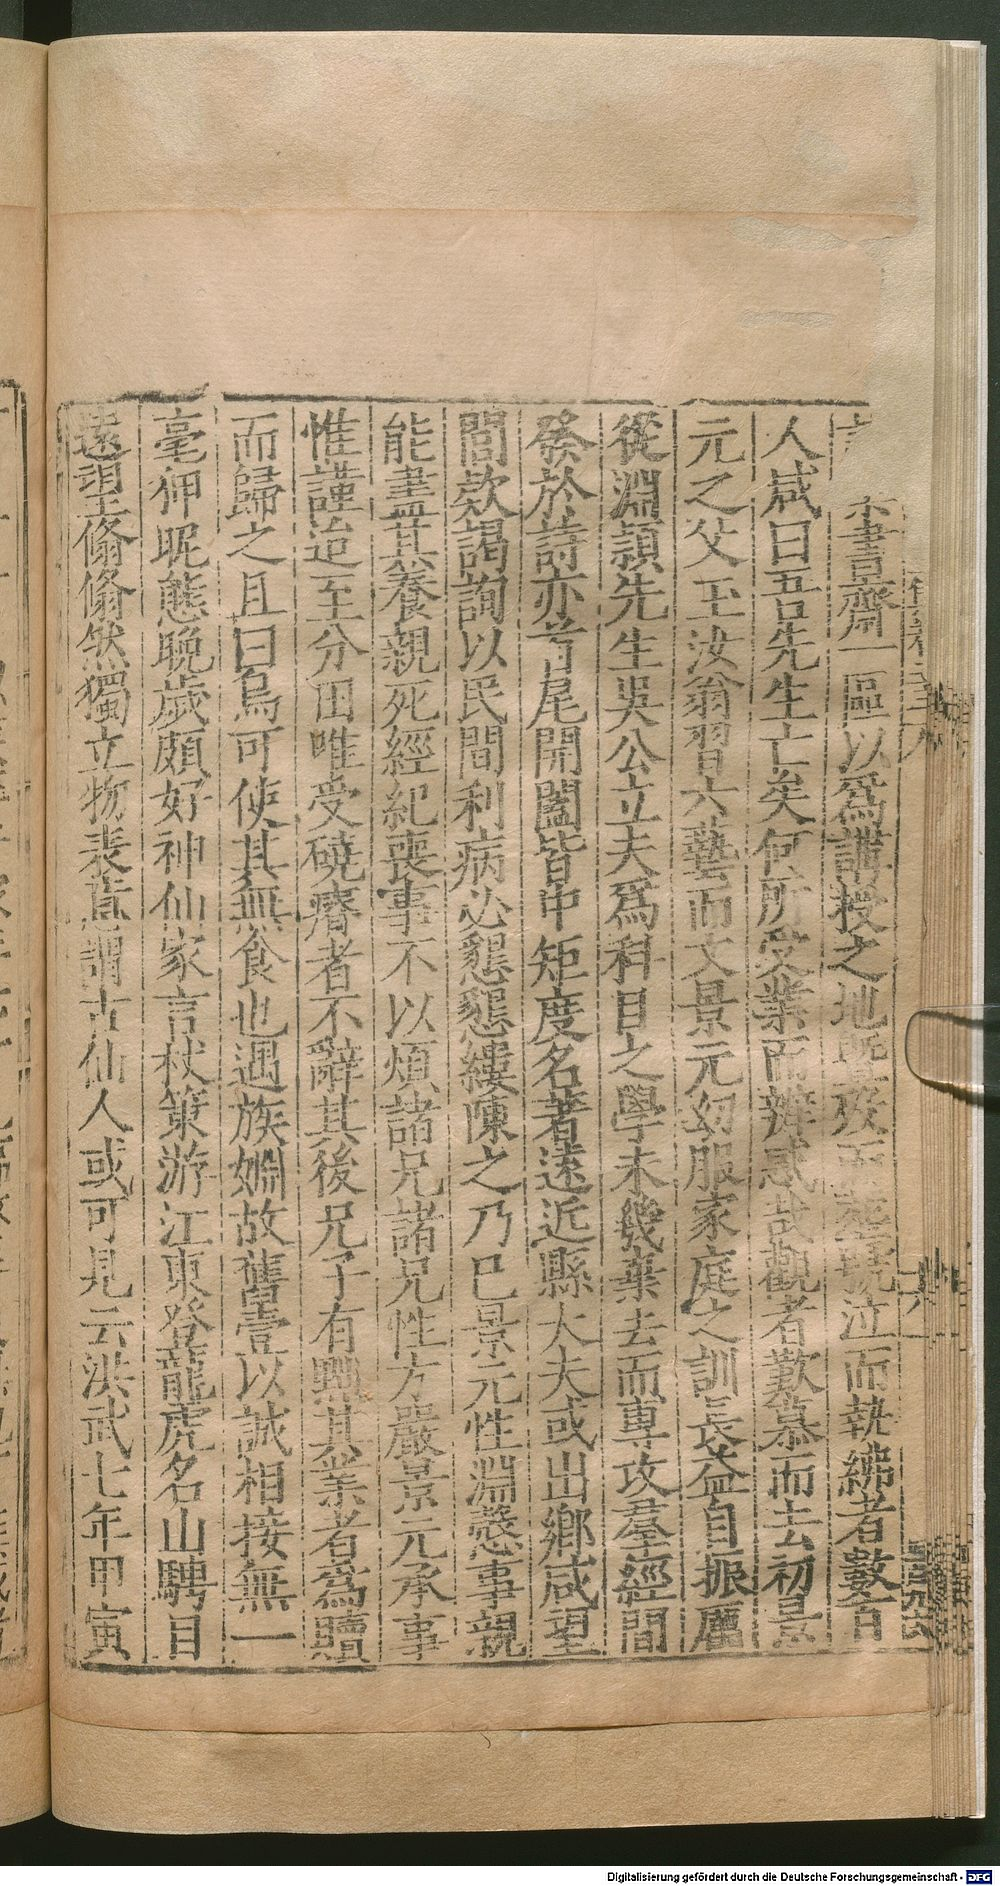 書齋一區以爲講授之地旣歿而葬號泣而執紼者數百
人咸曰吾先生亡矣何所受業而辨惑哉觀者歎慕而去初景
元之父玉汝翁習六藝而文景元幼服家庭之訓長益自振厲
從淵頴先生吳公立夫爲科目之學未幾棄去而專攻羣經間
發於詩亦首尾開闔皆中矩度名著遠近縣大夫或出鄉咸望
閭欵謁詢以民間利病必懇懇縷陳之乃已景元性淵慤事親
能盡其養親死經紀喪事不以煩諸兄諸兄性方嚴景元承事
惟謹迨至分田唯受磽瘠者不辭其後兄子有鬻其業者爲贖
而歸之且曰烏可使其無食也遇族姻故舊壹以誠相接無一
毫狎昵態晚歲頗好神仙家言杖策游江東登龍虎名山騁目
遠望翛翛然獨立物表意謂古仙人或可見云洪武七年甲寅